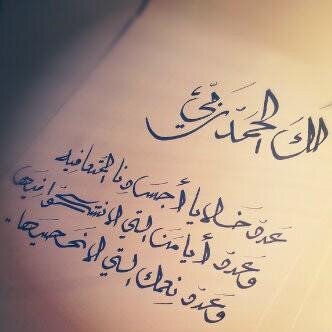 لك الحمد ربي
عدد خلايا أجسادنا المتعافيه
وعدد أيامنا التي لا نشكو فيها
وعدد نعمك التي لا نحصيها.